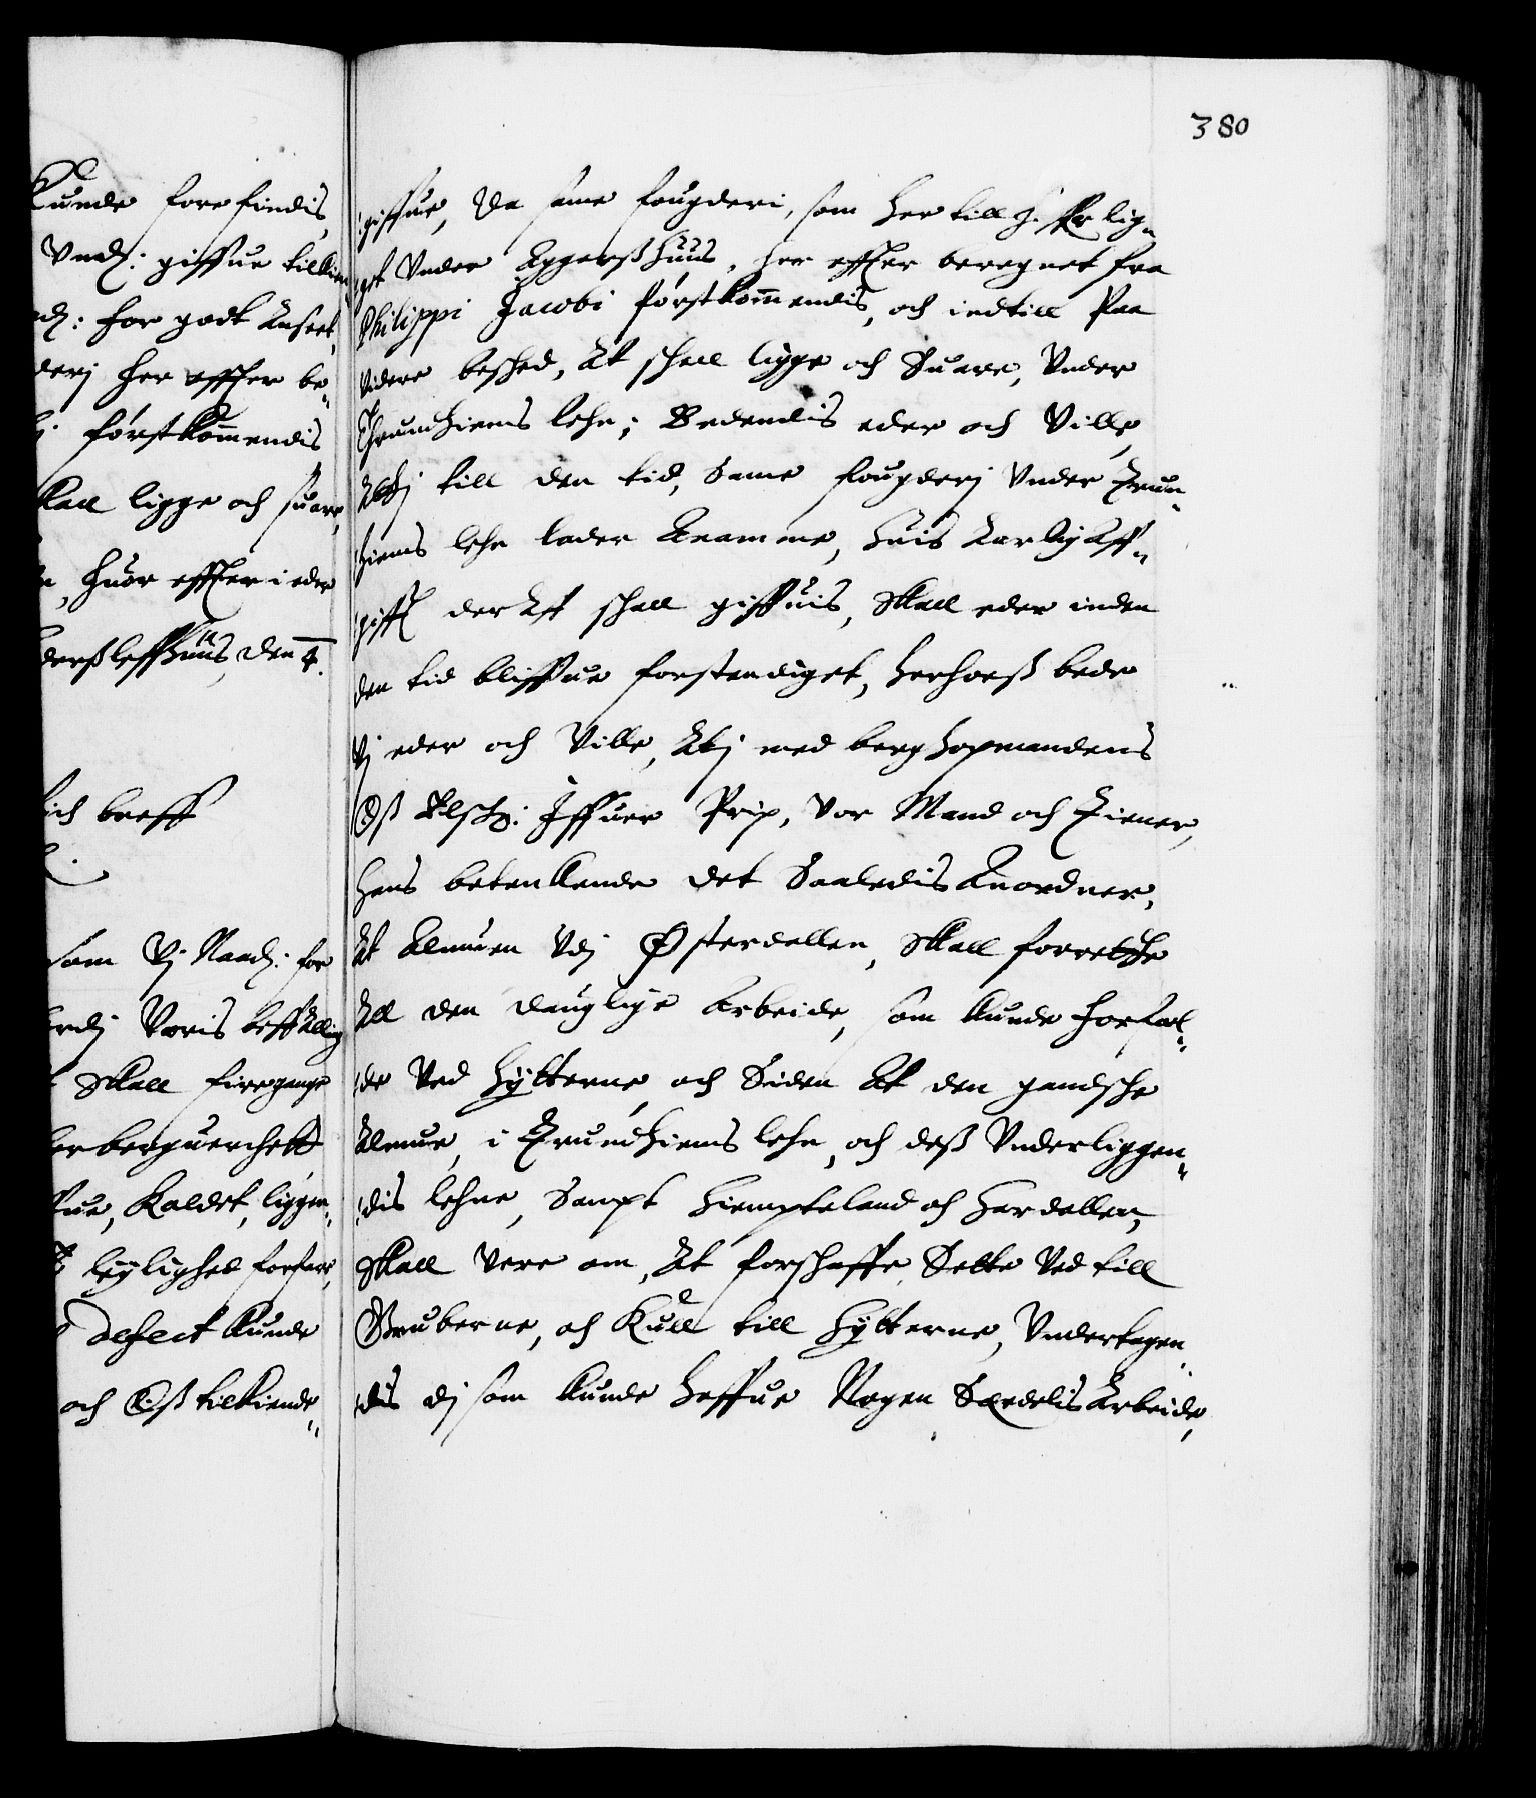 380
Kunde forefindis,
Vnd: giffue tilkien¬
nd: for godt Anseet,
derj her effter be¬
j førstkommendis
skall ligge och suare,
huor effter i eder
derßleffhuus, den 4.
breff
som Vj Naad: for
Voris beffalling
skall furegange
berguerchett
Kaldet, liggen¬
leyligheed forfare,
defect kunde
och Oß tilkiende¬
giffue, Da same fougderi, som her till h. lig¬
get Vnder Aggerßhuus, her effter beregnet fra
Philippi Jacobi førstkommendis, och indtill Paa
videre beskeed, At schall ligge och Suare, Vnder
Thrundhiems lehn; Bedendis eder och Ville,
Atj till den tid, Same fougderj Vnder Trun¬
hiems lehn lader Anamme, huis Aarlig Aff¬
gifft der Aff schall giffuis, Skall eder inden
den tid bliffue forstendiget, herhoeß bede
Vj eder och Ville, Atj med berghopmandens
Oß Elskg: Iffuer Prip, Vor Mand och Tiener,
hans betenkende det Saaledis Anordner,
At Almuen Vdj Østerdallen, Skall forrette
All den dauglige Arbeide, som kunde forfal¬
de Ved hytterne, och Siden At den gandsche
Almue, i Trundhiems lehn, och deß Vnderliggen¬
dis lehne, Sampt hiempteland och Herdallen,
Skall Vere om, At forschaffe Sette Ved till
Gruberne, och Kull till Hytterne, Vndertagen¬
dis dj som kunde haffue Nogen Særdelis Arbeide,